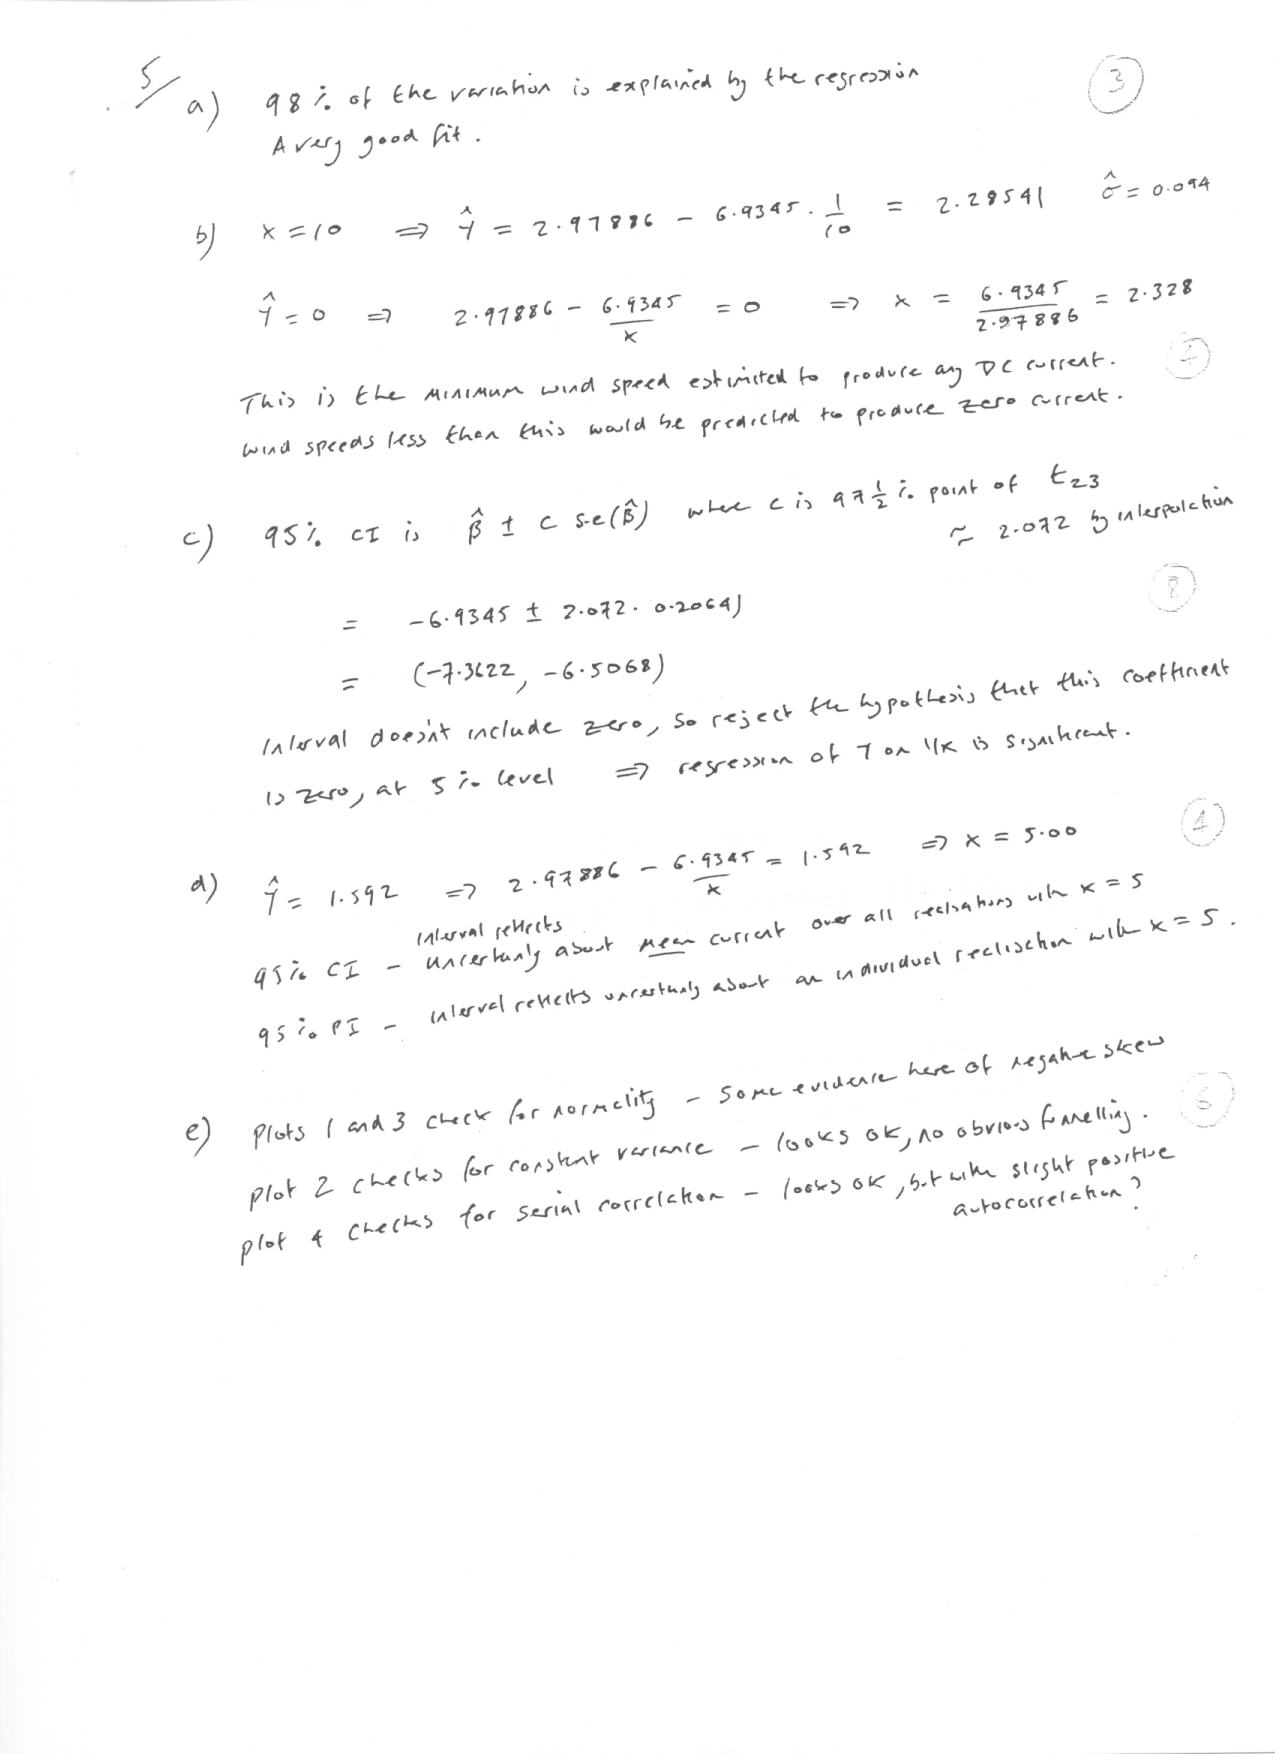 5/
a) 98% of the variation is explained by the regression (3)
A very good fit.
b) x = 10 ⇒ Ŷ = 2.97886 − 6.9345 . 1/10 = 2.28541 σ̂ = 0.094
Ŷ = 0 ⇒ 2.97886 − 6.9345/x = 0 ⇒ x = 6.9345/2.97886 = 2.328
This is the minimum wind speed estimated to produce any DC current.
wind speeds less than this would be predicted to produce zero current.
c) 95% CI is β̂ ± c s.e(β̂) where c is 97½% point of t23
≃ 2.072 by interpolation
(8)
= −6.9345 ± 2.072 . 0.2064)
= (−7.3622, −6.5068)
Interval doesn't include zero, so reject the hypothesis that this coefficient
is zero, at 5% level ⇒ regression of Y on 1/x is significant.
d) Ŷ = 1.592 ⇒ 2.97886 − 6.9345/x = 1.592 ⇒ x = 5.00
interval reflects
95% CI − uncertainty about mean current over all realisations with x = 5
95% PI − interval reflects uncertainty about an individual realisation with x = 5.
e) Plots 1 and 3 check for normality − some evidence here of negative skew (6)
plot 2 checks for constant variance − looks ok, no obvious funnelling.
plot 4 checks for serial correlation − looks ok, but with slight positive
autocorrelation?